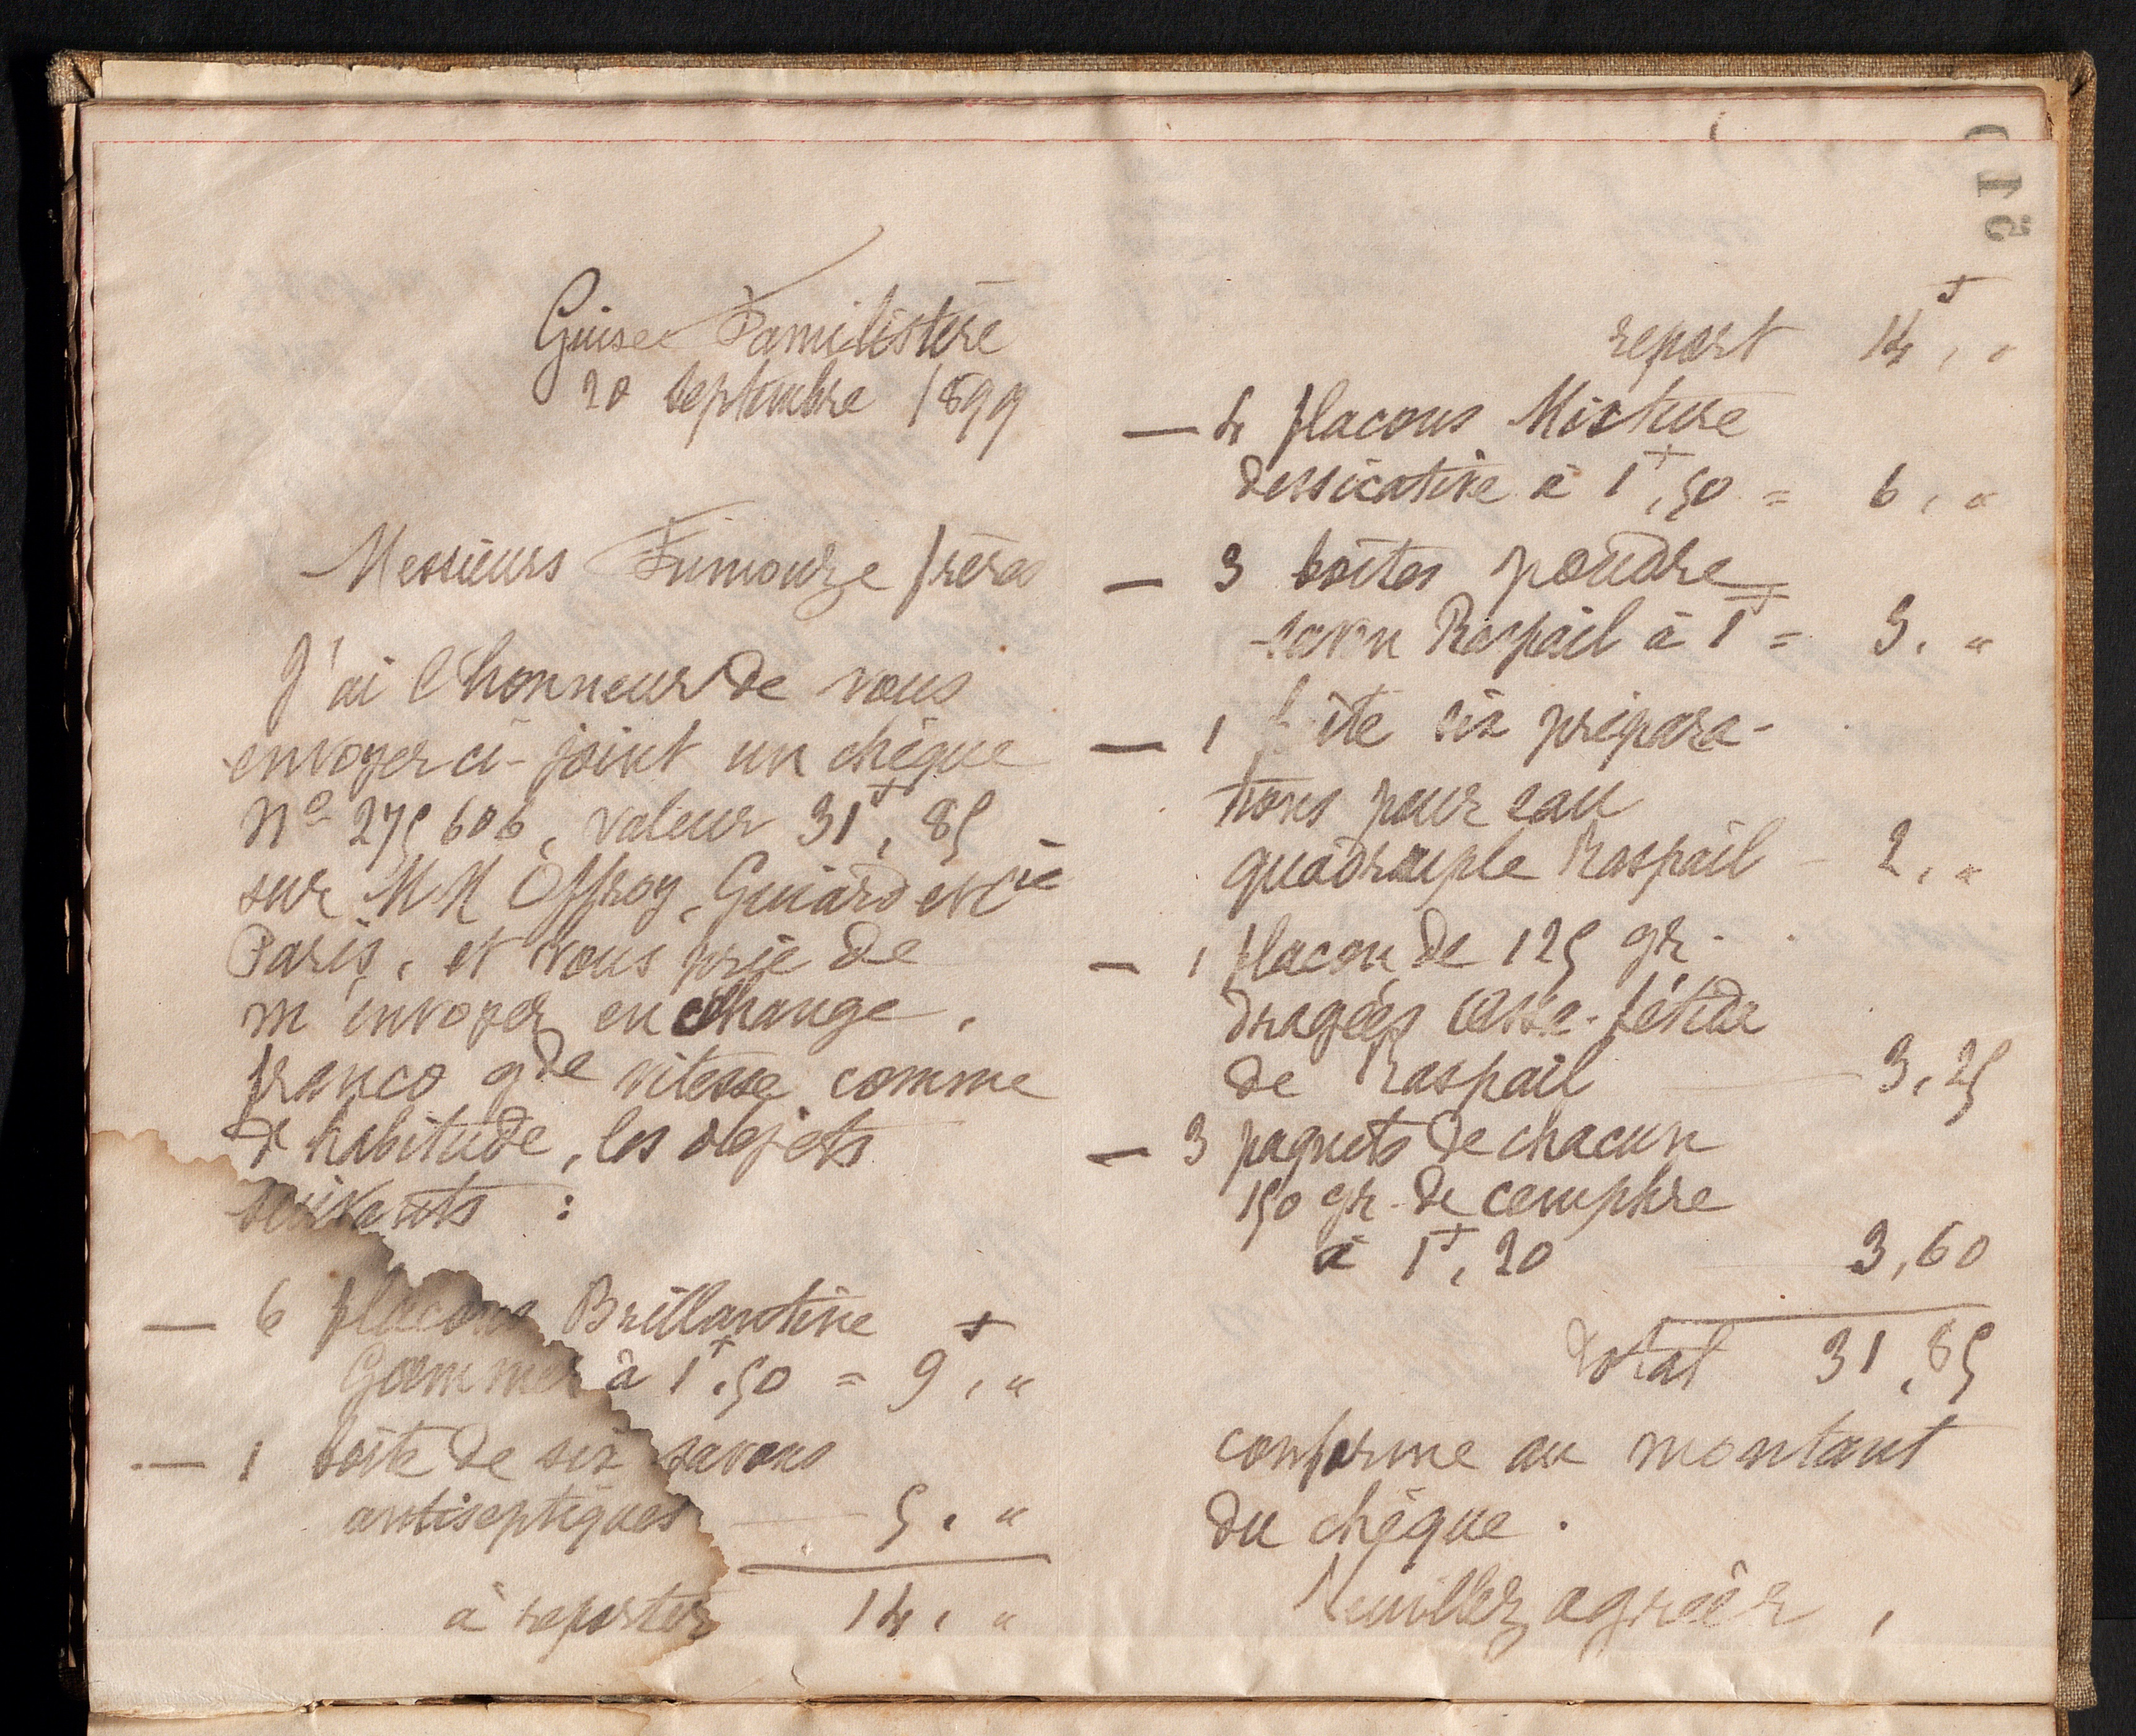 Guise Familistère
20 septembre 1899
Messieurs Fumouze frères
J'ai l'honneur de vous
envoyer ci-joint un chèque
No 275606, valeur 31f,85
sur MM Offroy, Guiard et Cie
Paris, et vous prie de
m'envoyer en échange,
franco gde vitesse comme
d'habitude, les objets
suivants :
— 6 flacons Brillantine
Gammer à 1f,50 = 9f,"
— 1 boîte de six savons
antiseptiques — 5,"
à reporter 14,"
report 14f,"
— 4 flacons Mixture
dessicative à 1f,50 = 6,"
— 3 boîtes poudre
savon Raspail à 1f = 3,"
— 1 boîte six prépara-
tions pour eau
quadruple Raspail — 2,"
— 1 flacon de 125 gr.
dragées assa-fétida
de Raspail — 3,25
— 3 paquets de chacun
150 gr. de camphre
à 1f,20 3,60
Total 31,85
conforme au montant
du chèque.
Veuillez agréer,